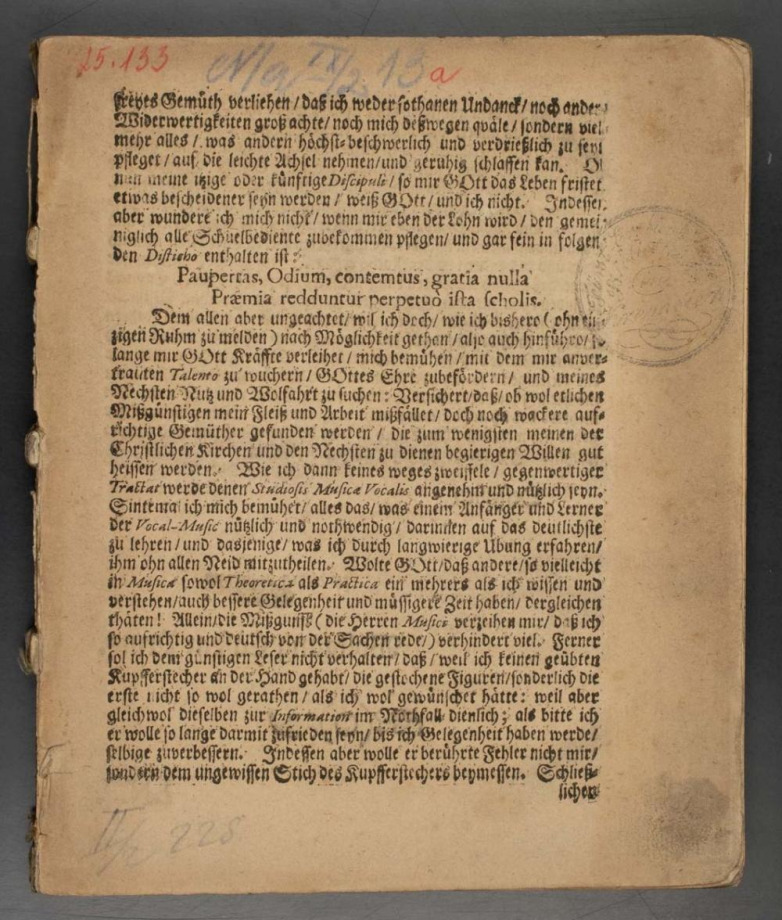 15.133
Mg IX/2 13 a
freyes Gemüth verliehen / daß ich weder sothanen Undanck / noch ander
Widerwertigkeiten groß achte / noch mich deßwegen quäle / sondern viel
mehr alles / was andern höchst-beschwerlich und verdrießlich zu seyn
pfleget / auf die leichte Achsel nehmen / und geruhig schlaffen kan. Ob
nun meine itzige oder künftige Discipuli / so mir GOtt das Leben fristet
etwas bescheidener seyn werden / weiß GOtt / und ich nicht. Indessen
aber wundere ich mich nicht / wenn mir eben der Lohn wird / den gemei-
niglich alle Schuelbediente zubekommen pflegen / und gar fein in folgen-
den Disticho enthalten ist:
Paupertas, Odium, contemtus, gratia nulla
Præmia redduntur perpetuò ista scholis.
Dem allen aber ungeachtet / wil ich doch / wie ich bishero ( ohn ein-
zigen Ruhm zu melden ) nach Möglichkeit gethan / also auch hinführo / so
lange mir GOtt Kräffte verleihet / mich bemühen / mit dem mir anver-
trauten Talento zu wuchern / GOttes Ehre zubefördern / und meines
Nechsten Nutz und Wolfahrt zu suchen: Versichert / daß / ob wol etlichen
Mißgünstigen mein Fleiß und Arbeit mißfället / doch noch wackere auf-
richtige Gemüther gefunden werden / die zum wenigsten meinen der
Christlichen Kirchen und den Nechsten zu dienen begierigen Willen gut
heissen werden. Wie ich dann keines weges zweiffele / gegenwertiger
Tractat werde denen Studiosis Musicæ Vocalis angenehm und nützlich seyn.
Sintemal ich mich bemühet / alles das / was einem Anfänger und Lerner
der Vocal-Music nützlich und nothwendig / darinden auf das deutlichste
zu lehren / und dasjenige / was ich durch langwierige Übung erfahren /
ihm ohn allen Neid mitzutheilen. Wolte GOtt / daß andere / so vielleicht
in Musicâ sowol Theoreticâ als Practicâ ein mehrers als ich wissen und
verstehen / auch bessere Gelegenheit und müssigere Zeit haben / dergleichen
thäten! Allein / die Mißgunst ( die Herren Musici verzeihen mir / daß ich
so aufrichtig und deutsch von der Sachen rede / ) verhindert viel. Ferner
sol ich dem günstigen Leser nicht verhalten / daß / weil ich keinen geübten
Kupfferstecher an der Hand gehabt / die gestochene Figuren / sonderlich die
erste nicht so wol gerathen / als ich wol gewünschet hätte: weil aber
gleichwol dieselben zur Information im Nothfall dienlich; als bitte ich
er wolle so lange darmit zufrieden seyn / bis ich Gelegenheit haben werde /
selbige zuverbessern. Indessen aber wolle er berührte Fehler nicht mir /
sondern dem ungewissen Stich des Kupfferstechers beymessen. Schließ-
lichen
II/2 228